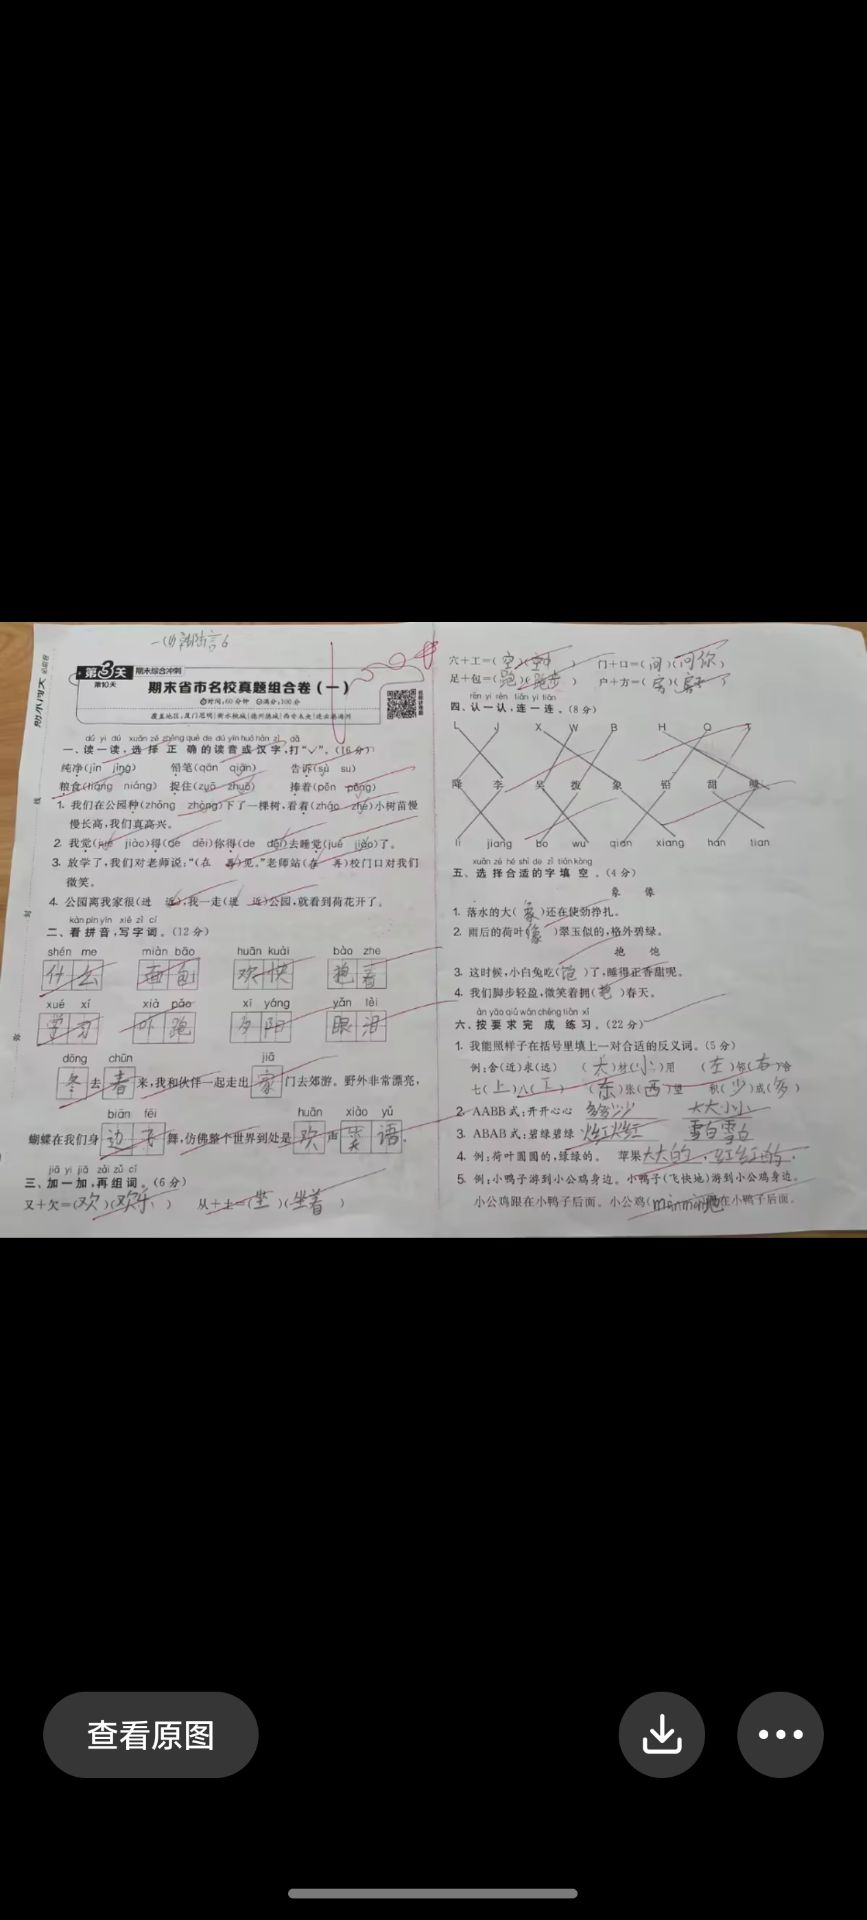 第3关 期末综合冲刺
第10天
期末省市名校真题组合卷（一）
时间:60分钟 满分:100分
dú yi dú xuǎn zé zhèng què de dú yīn huò hàn zì dǎ
一、读一读,选择正确的读音或汉字,打“✓”。(16分)
纯净(jìn jìng) 铅笔(qān qiān) 告诉(sù su)
粮食(liáng niáng) 捉住(zuō zhuō) 捧着(pěn pěng)
1. 我们在公园种(zhǒng zhòng)下了一棵树,看着(zháo zhe)小树苗慢
慢长高,我们真高兴。
2. 我觉(jué jiào)得(de děi)你得(de děi)去睡觉(jué jiào)了。
3. 放学了,我们对老师说:“(在 再)见。”老师站(在 再)校门口对我们
微笑。
4. 公园离我家很(进 近),我一走(进 近)公园,就看到荷花开了。
kàn pīn yīn xiě zì cí
二、看拼音,写字词。(12分)
shén me miàn bāo huān kuài bào zhe
什么 面包 欢快 抱着
xué xí xià pǎo xī yáng yǎn lèi
学习 吓跑 夕阳 眼泪
dōng chūn jiā
冬去春来,我和伙伴一起走出家门去郊游。野外非常漂亮,
biān fēi huān xiào yǔ
蝴蝶在我们身边飞舞,仿佛整个世界到处是欢声笑语。
jiā yi jiā zài zǔ cí
三、加一加,再组词。(6分)
又+欠=(欢)(欢乐) 从+土=(坐)(坐着)
穴+工=(空)(空中) 门+口=(问)(问你)
足+包=(跑)(跑步) 户+方=(房)(房子)
rèn yi rèn lián yi lián
四、认一认,连一连。(8分)
L J X W B H Q T
降 李 吴 拨 象 铅 甜 喊
lǐ jiàng bō wú qiān xiàng hǎn tián
xuǎn zé hé shì de zì tián kòng
五、选择合适的字填空。(4分)
象 像
1. 落水的大(象)还在使劲挣扎。
2. 雨后的荷叶(像)翠玉似的,格外碧绿。
抱 饱
3. 这时候,小白兔吃(饱)了,睡得正香甜呢。
4. 我们脚步轻盈,微笑着拥(抱)春天。
àn yāo qiú wán chéng liàn xí
六、按要求完成练习。(22分)
1. 我能照样子在括号里填上一对合适的反义词。(5分)
例:舍(近)求(远) (大)材(小)用 (左)邻(右)舍
七(上)八(下) (东)张(西)望 积(少)成(多)
2. AABB式:开开心心 多多少少 大大小小
3. ABAB式:碧绿碧绿 火红火红 雪白雪白
4. 例:荷叶圆圆的,绿绿的。 苹果大大的,红红的。
5. 例:小鸭子游到小公鸡身边。小鸭子(飞快地)游到小公鸡身边。
小公鸡跟在小鸭子后面。小公鸡(mànmàn地)跟在小鸭子后面。
查看原图